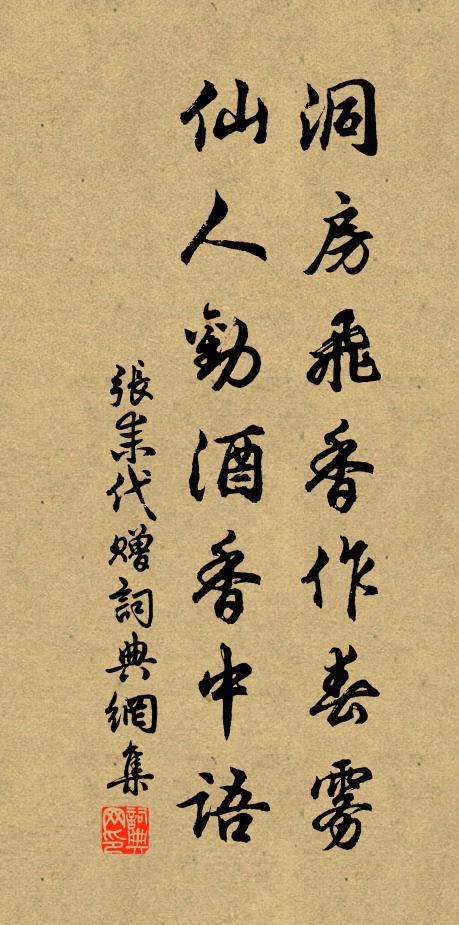 洞房飛香作春霧
仙人勸酒香中語
張耒代贈詞典網集
詞典网印